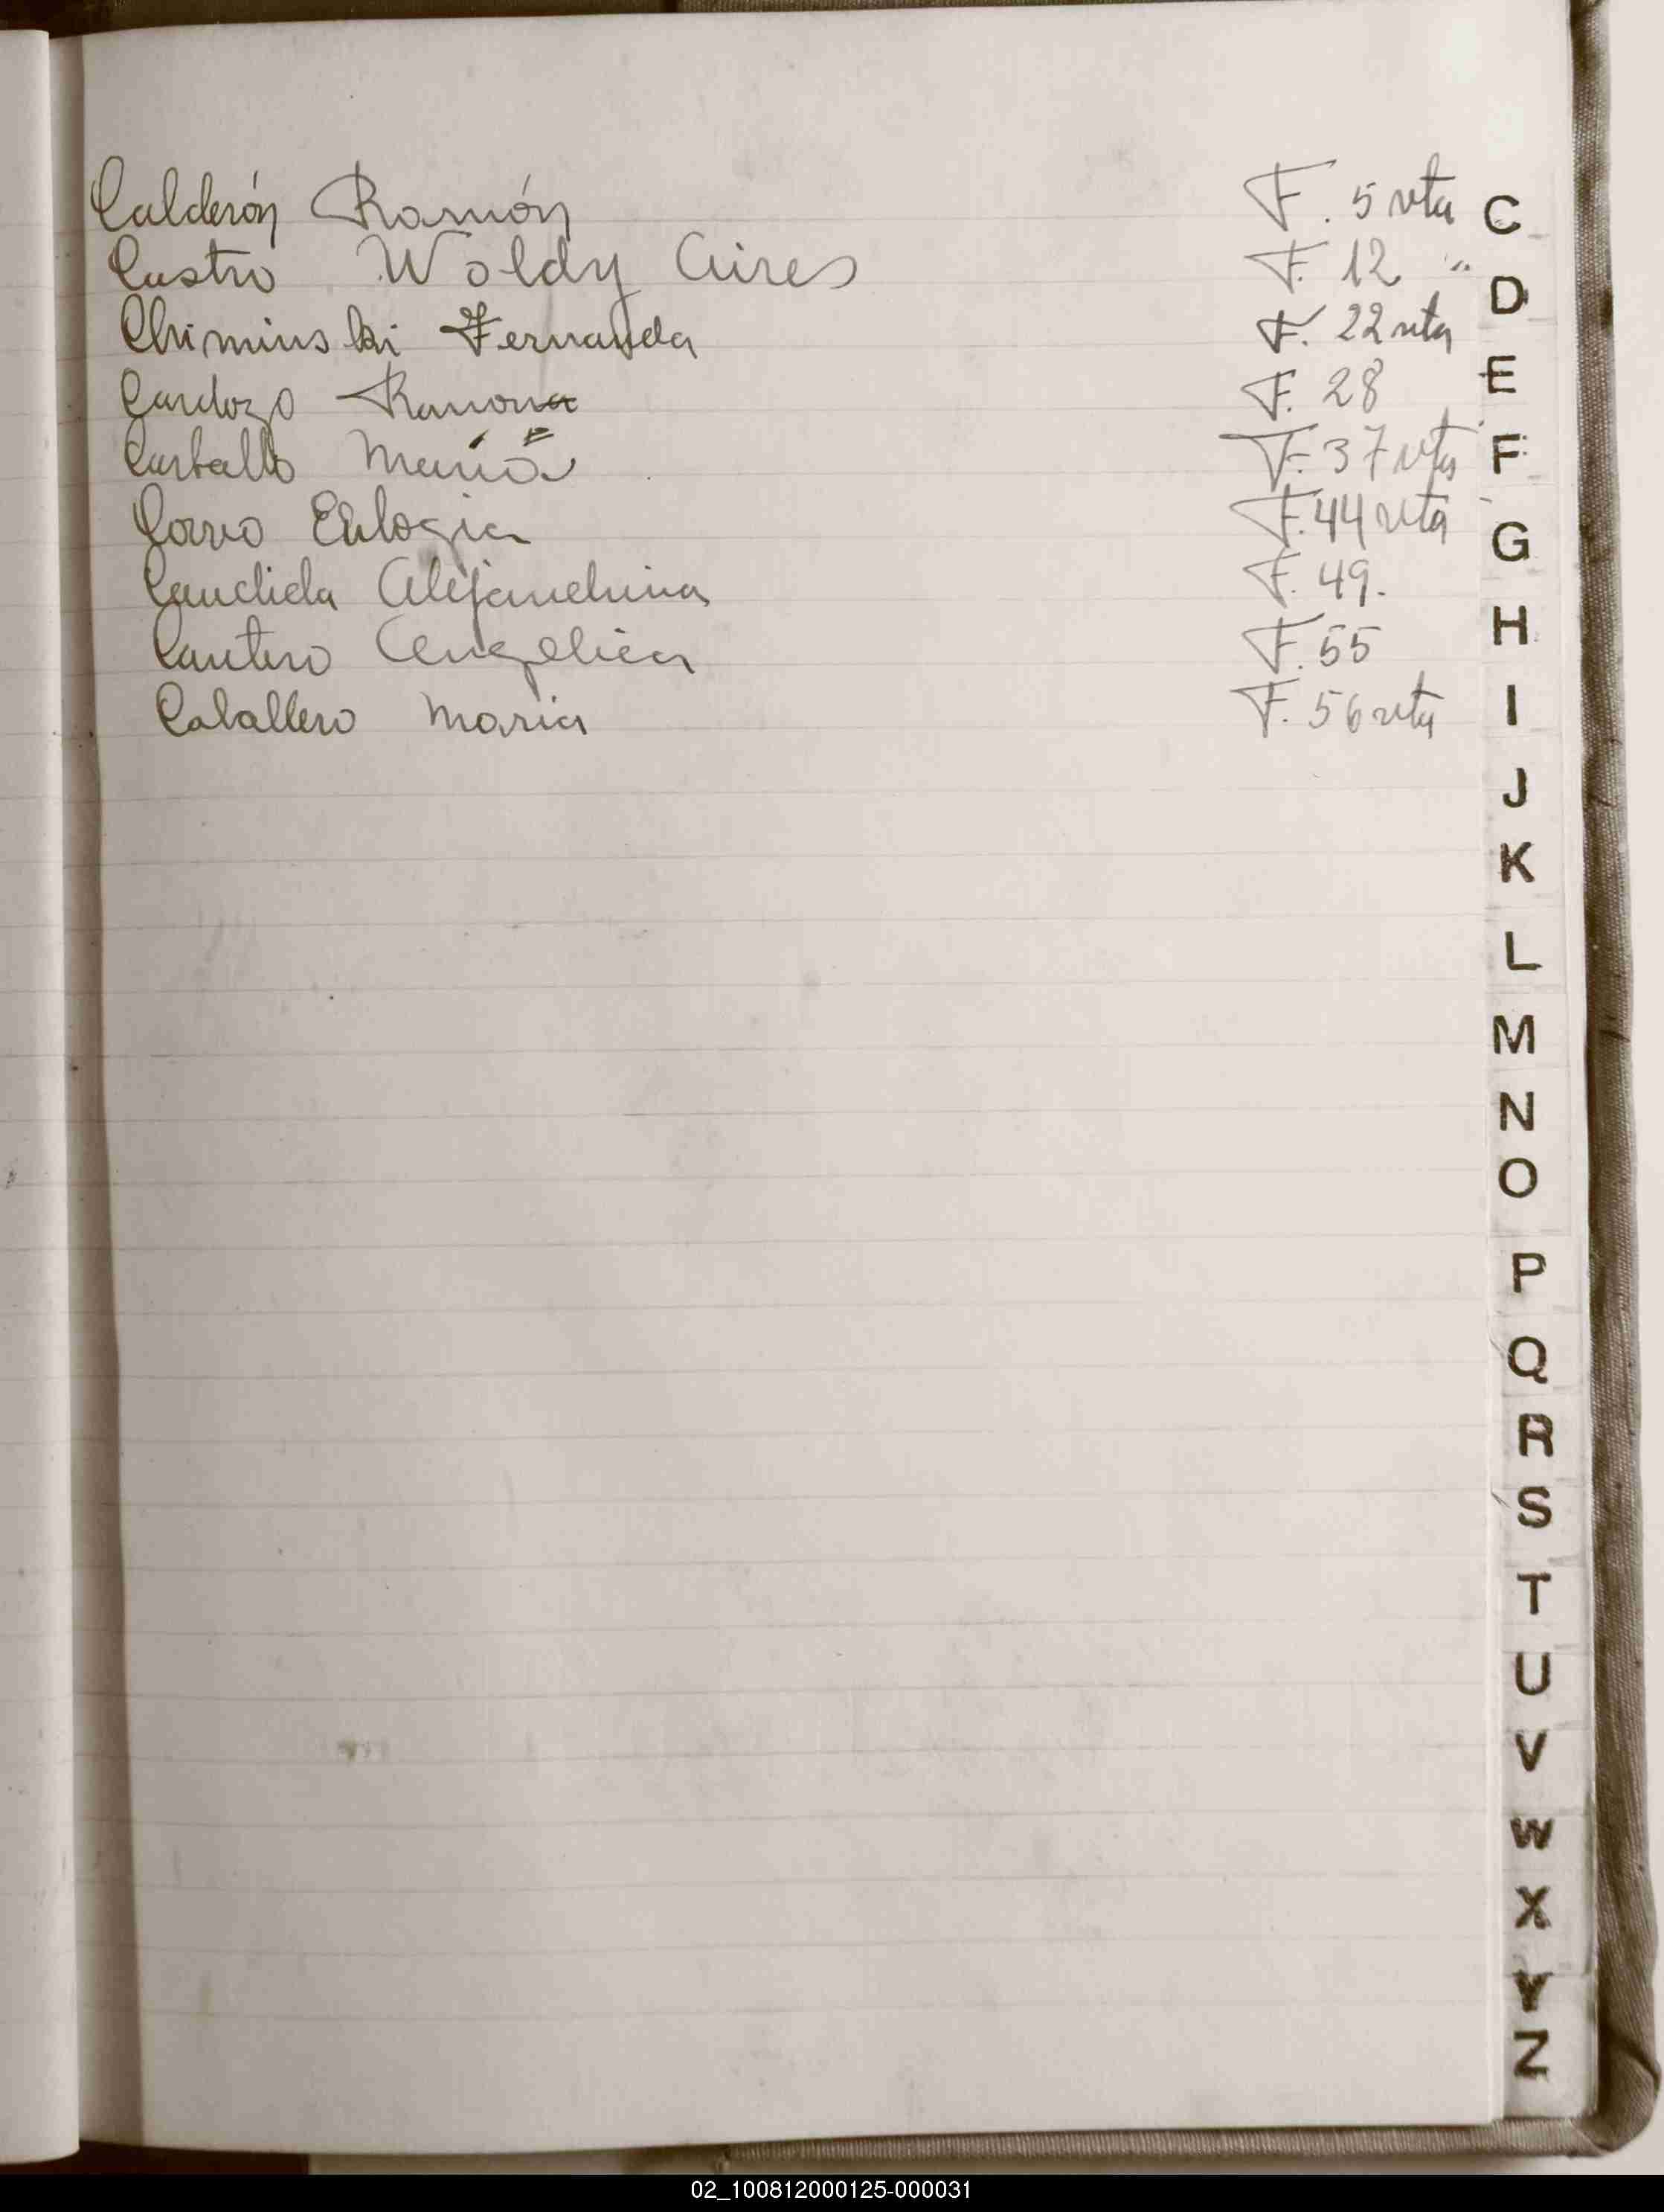 Calderón Ramón F. 5 vta
Castro Woldy Aires F. 12 "
Chiminski Fernanda F. 22 vta
Cardozo Ramona F. 28
Carballo María F. 37 vta
Corvo Eulogia F. 44 vta
Candida Alejandrina F. 49.
Cantero Angelica F. 55
Caballero Maria F. 56 vta
C
D
E
F
G
H
I
J
K
L
M
N
O
P
Q
R
S
T
U
V
W
X
Y
Z
02_100812000125-000031